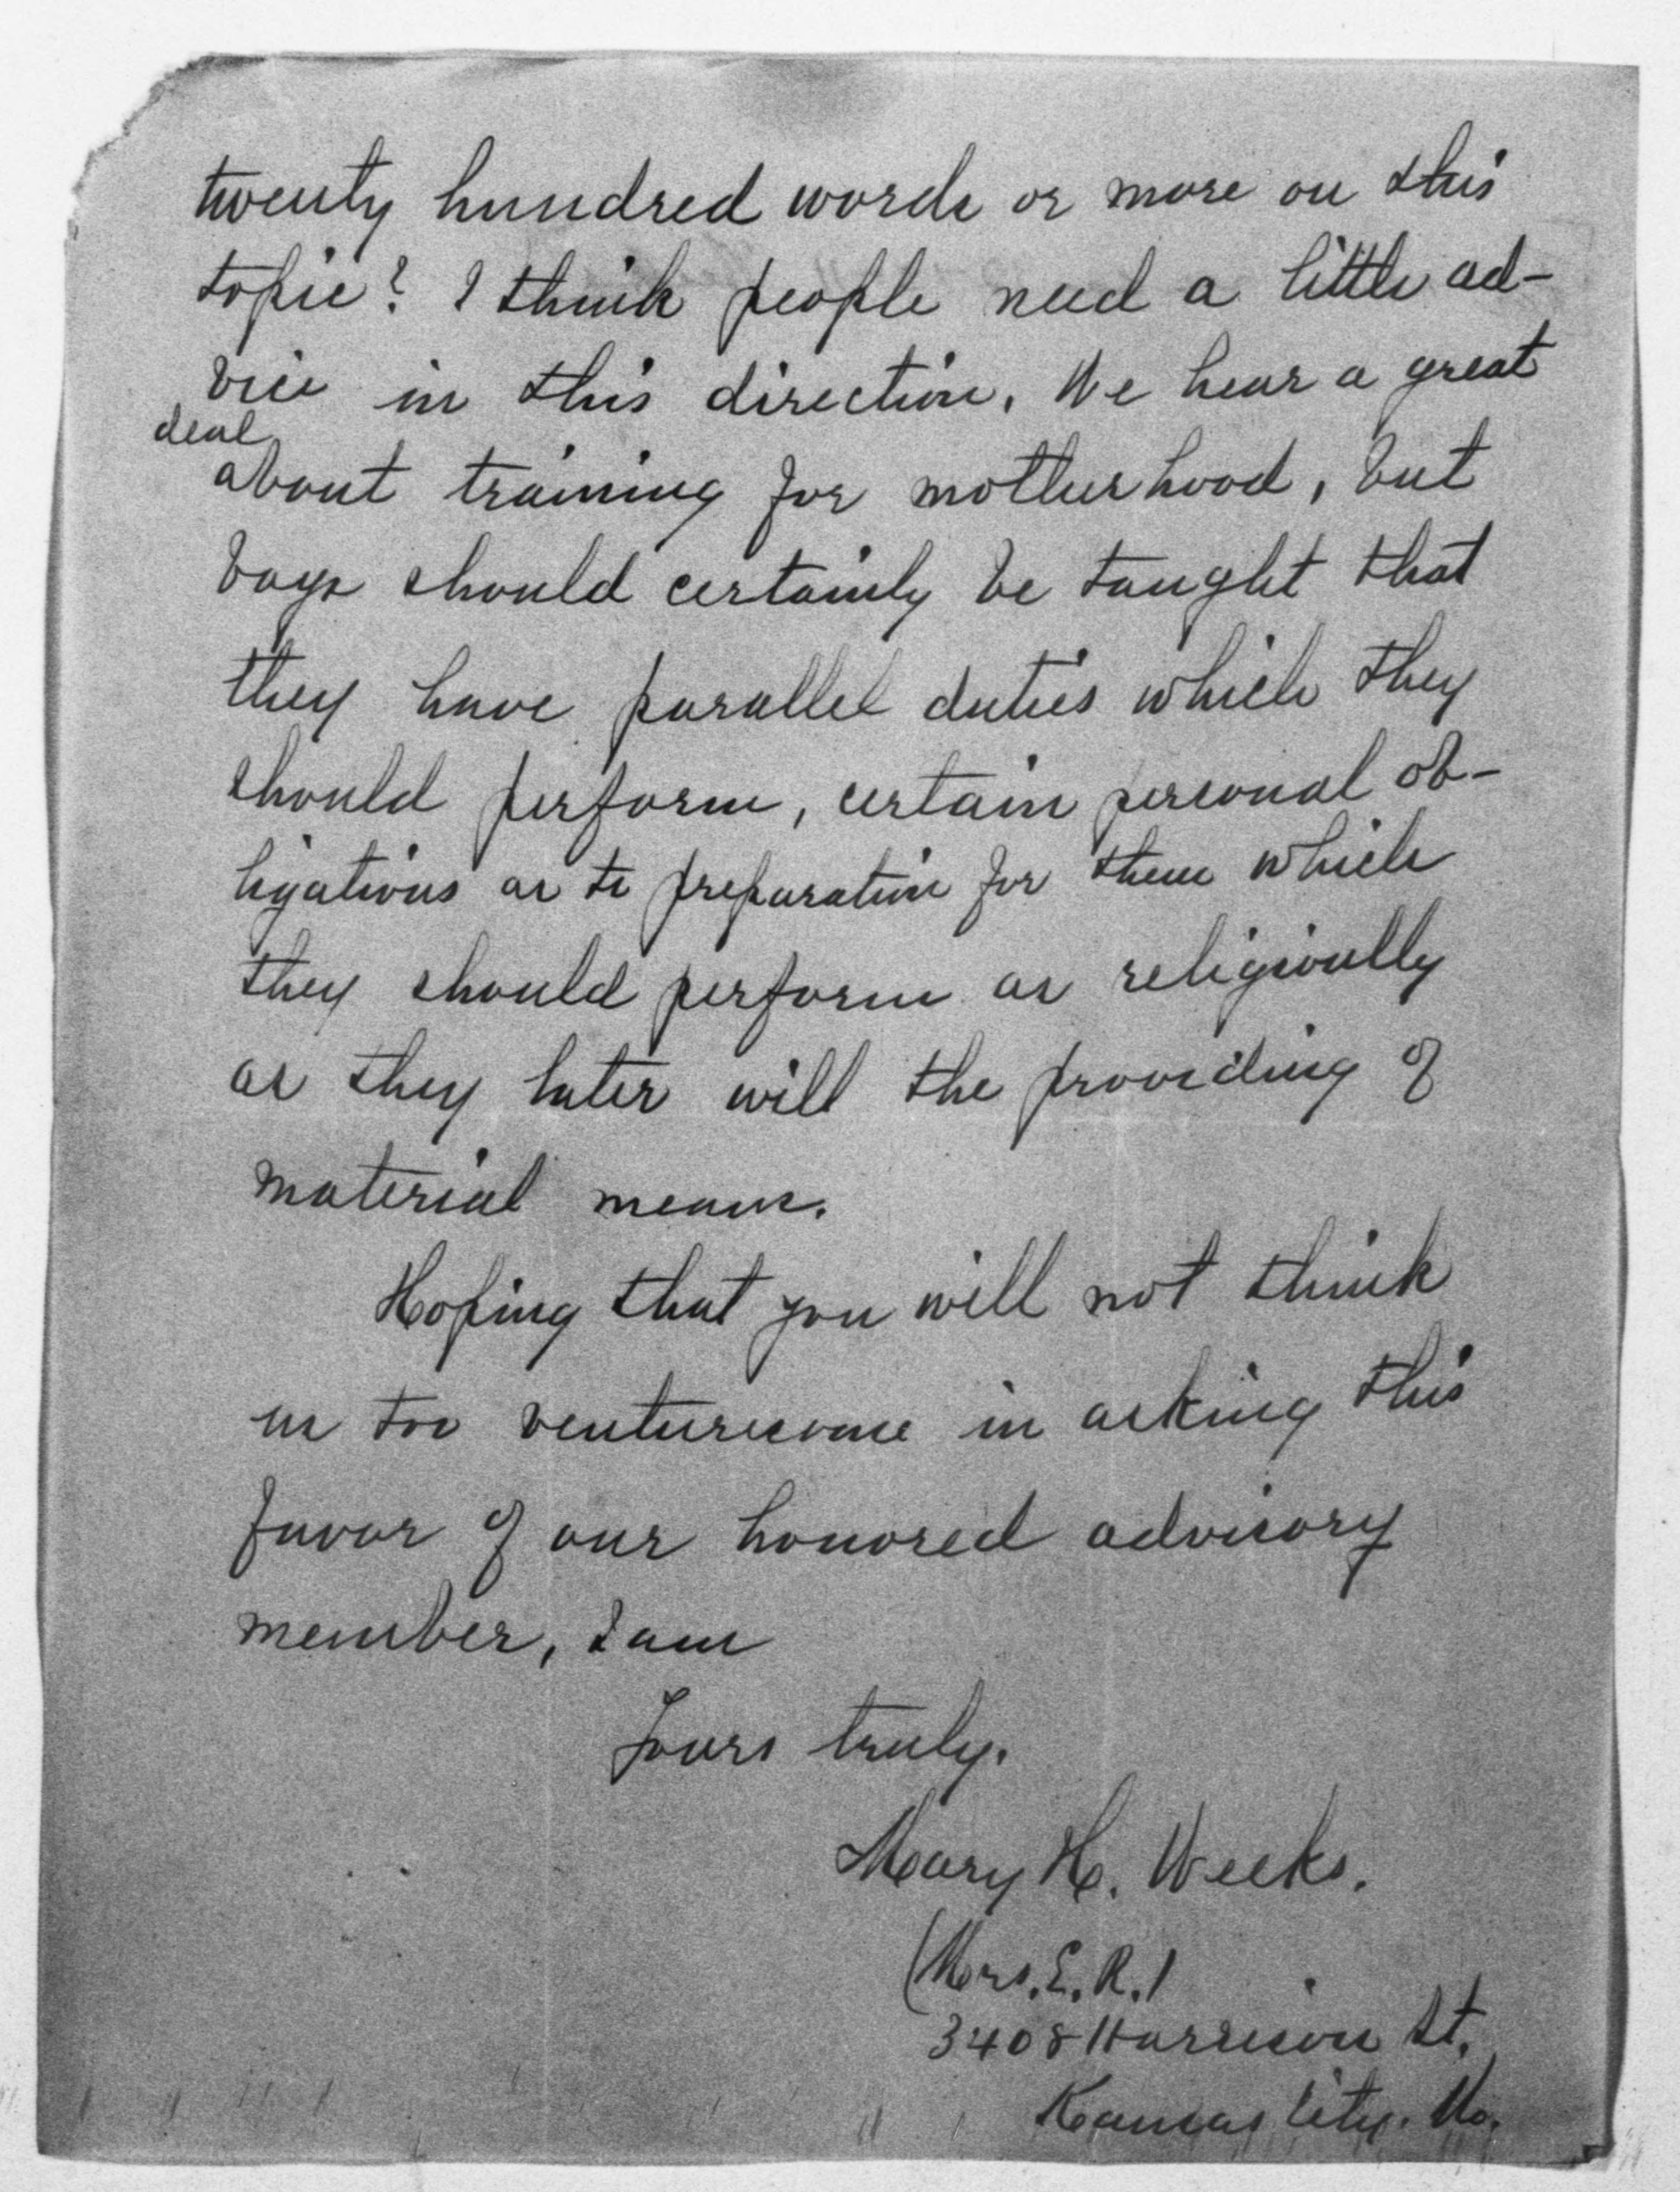 twenty hundred words or more on this
topic? I think people need a little ad-
vice in this direction. We hear a great
deal
about training for motherhood, but
boys should certainly be taught that
they have parallel duties which they
should perform, certain personal ob-
ligations as to preparation for them which
they should perform as religiously
as they later will the providing of
material means.
Hoping that you will not think
us too venturesome in asking this
favor of our honored advisory
member, I am
Yours truly.
Mary H. Weeks.
(Mrs. E. R.)
3408 Harrison St.
Kansas City. Mo.